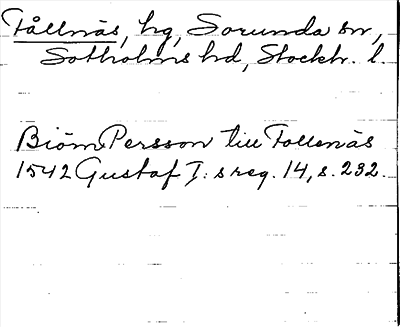 Fållnäs, hg, Sorunda sn,
Sotholms hd, Stockh. l.
Biörn Persson till Follenäs
1542 Gustaf I:s reg. 14, s. 232.